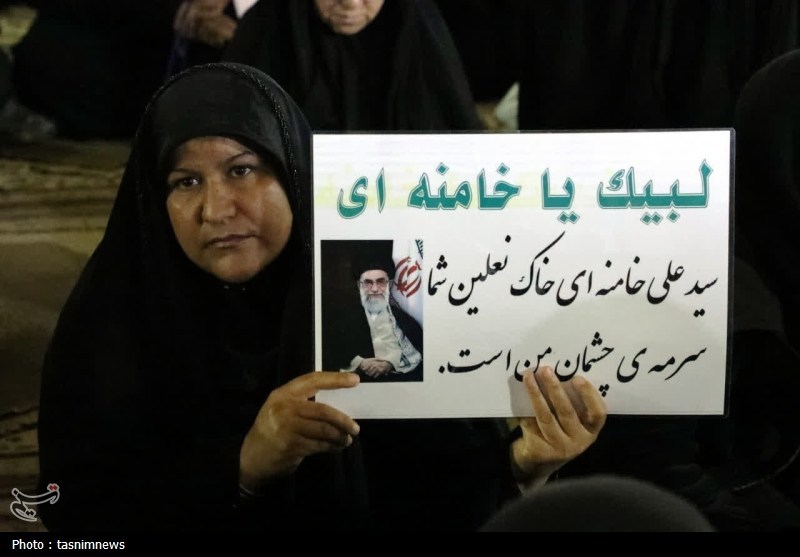 لبيك يا خامنه ای
سید علی خامنه ای خاک نعلین شما
سرمه ی چشمان من است.
تسنیم
Photo : tasnimnews